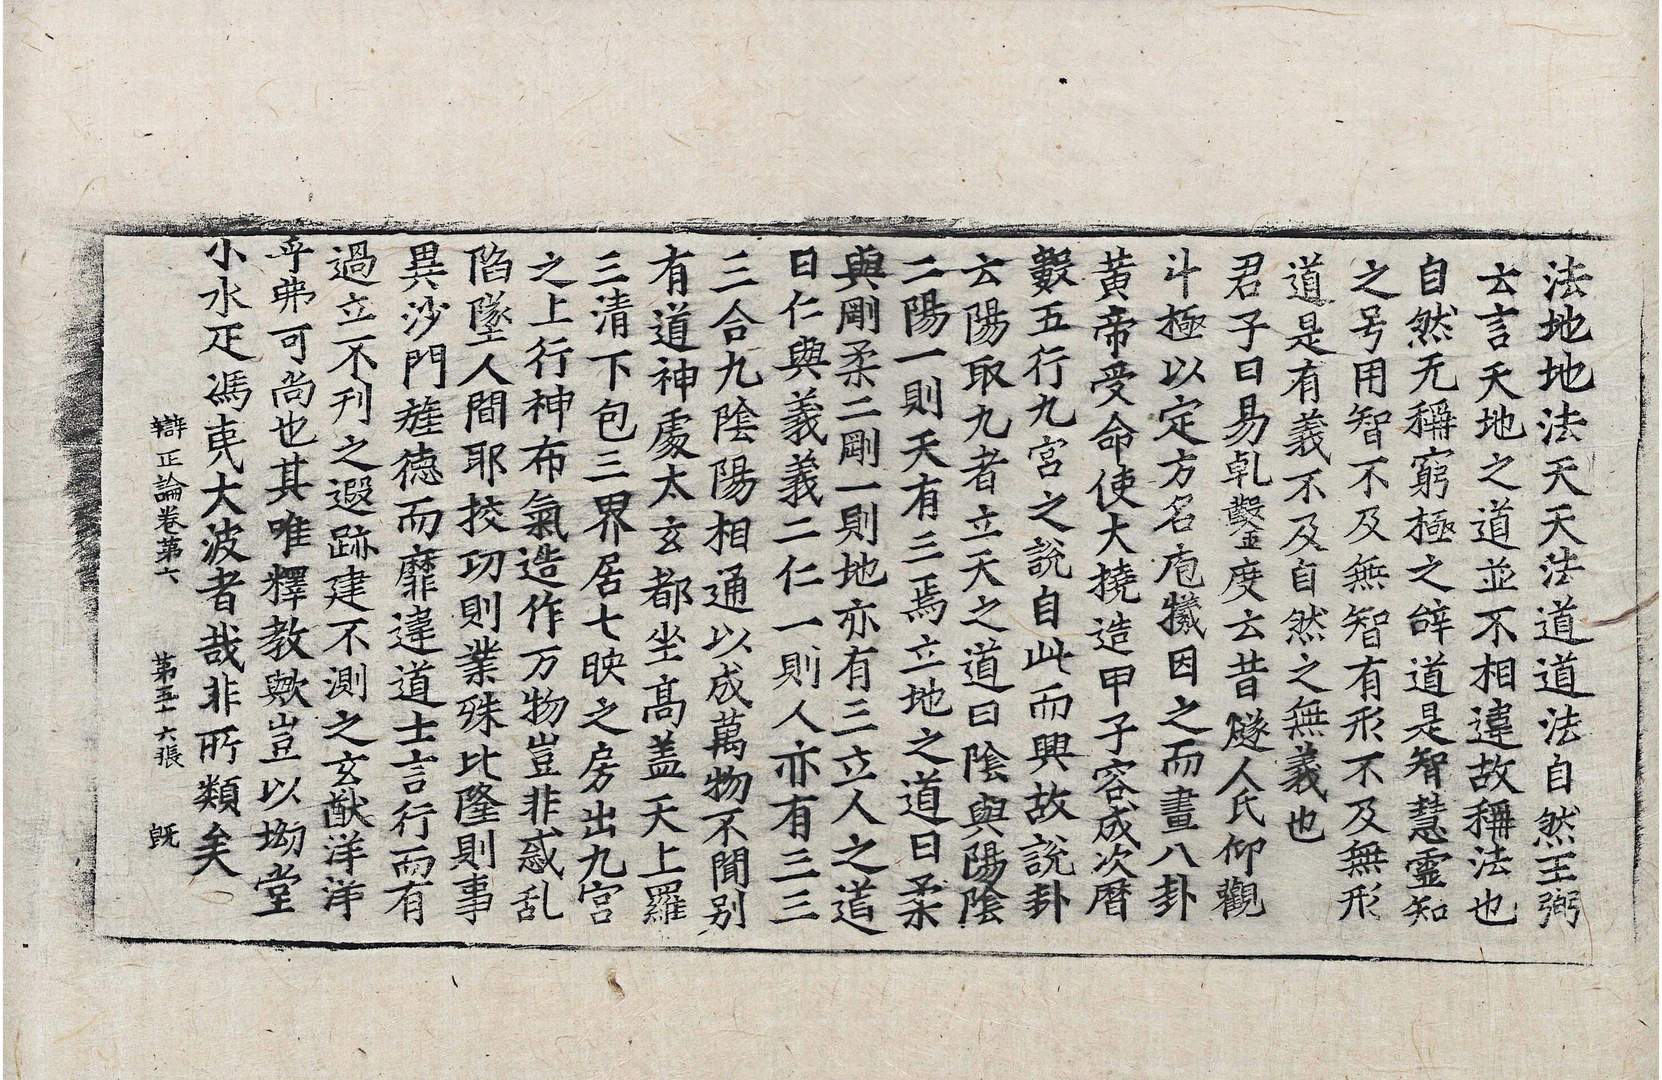 法地地法天天法道道法自然王弼
云言天地之道並不相違故稱法也
自然无稱窮極之辝道是智慧靈知
之号用智不及無智有形不及無形
道是有義不及自然之無義也
君子曰易乹鑿度云昔燧人氏仰觀
斗極以定方名庖犧因之而畫八卦
黃帝受命使大撓造甲子容成次曆
數五行九宮之說自此而興故說卦
云陽取九者立天之道曰陰與陽陰
二陽一則天有三焉立地之道曰柔
與剛柔二剛一則地亦有三立人之道
曰仁與義義二仁一則人亦有三三
三合九陰陽相通以成萬物不聞別
有道神處太玄都坐高盖天上羅
三清下包三界居七映之房出九宮
之上行神布氣造作万物豈非惑乱
陷墜人間耶挍功則業殊比隆則事
異沙門旌德而靡違道士言行而有
過立不刊之遐跡建不測之玄猷洋洋
乎弗可尚也其唯釋教歟豈以坳堂
小水疋馮夷大波者哉非所類矣
辯正論卷第六 第五十六張 旣